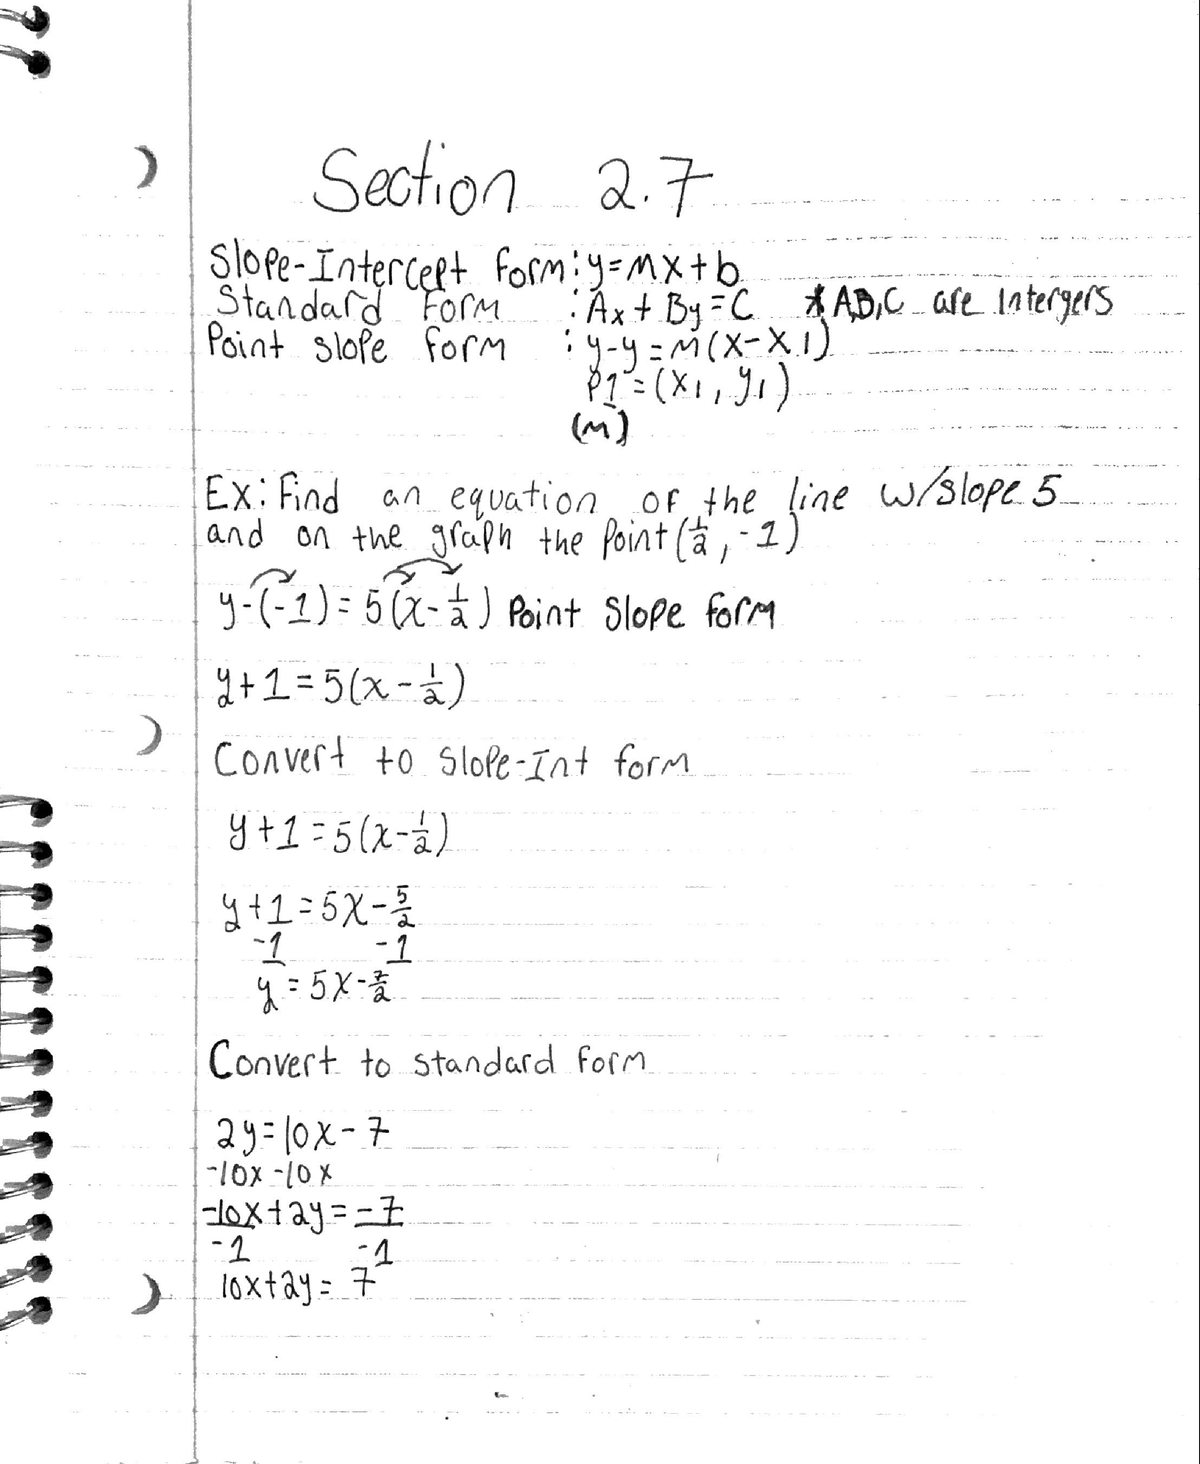 Section 2.7
Slope-Intercept form: y=mx+b
Standard Form : Ax + By = C *A,B,C are Intergers
Point slope form : y-y = m(x-x1)
P1 = (x1, y1)
(m)
Ex: Find an equation of the line w/slope 5
and on the graph the Point (1/2, -1)
y-(-1) = 5(x-1/2) Point Slope form
y+1=5(x-1/2)
Convert to Slope-Int form
y+1=5(x-1/2)
y+1=5x-5/2
-1 -1
y=5x-7/2
Convert to standard form
2y=10x-7
-10x -10x
-10x+2y=-7
-1 -1
10x+2y= 7